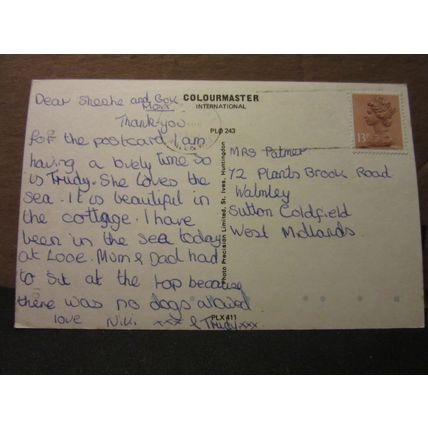 Dear Sheshe and
Mavx
COLOURMASTER
INTERNATIONAL
PLO 243
13P
Thankyou
for the postcard I am
having a lovely time so
is Trudy. She loves the
sea. It is beautiful in
the cottage. I have
been in the sea today
at Looe. Mum & Dad had
to sit at the top because
there was no dogs allowed
love Niki xxx & Trudy xxx
Photo Precision Limited, St. Ives, Huntingdon
PLX 411
MRS Palmer
72 Plants Brook Road
Walmley
Sutton Coldfield
West Midlands.